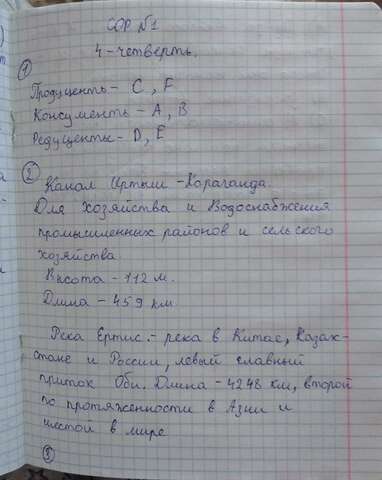 СОР №1
4-четверть.
①
Продуценты - C, F
Консументы - A, B
Редуценты - D, E
②
Канал Иртыш - Караганда.
Для хозяйства и водоснабжения
промышленных районов и сельского
хозяйства
Высота - 112 м.
Длина - 459 км
Река Ертис. - река в Китае, Казах-
стане и России, левый главный
приток Оби. Длина - 4248 км, второй
по протяженности в Азии и
шестой в мире
③